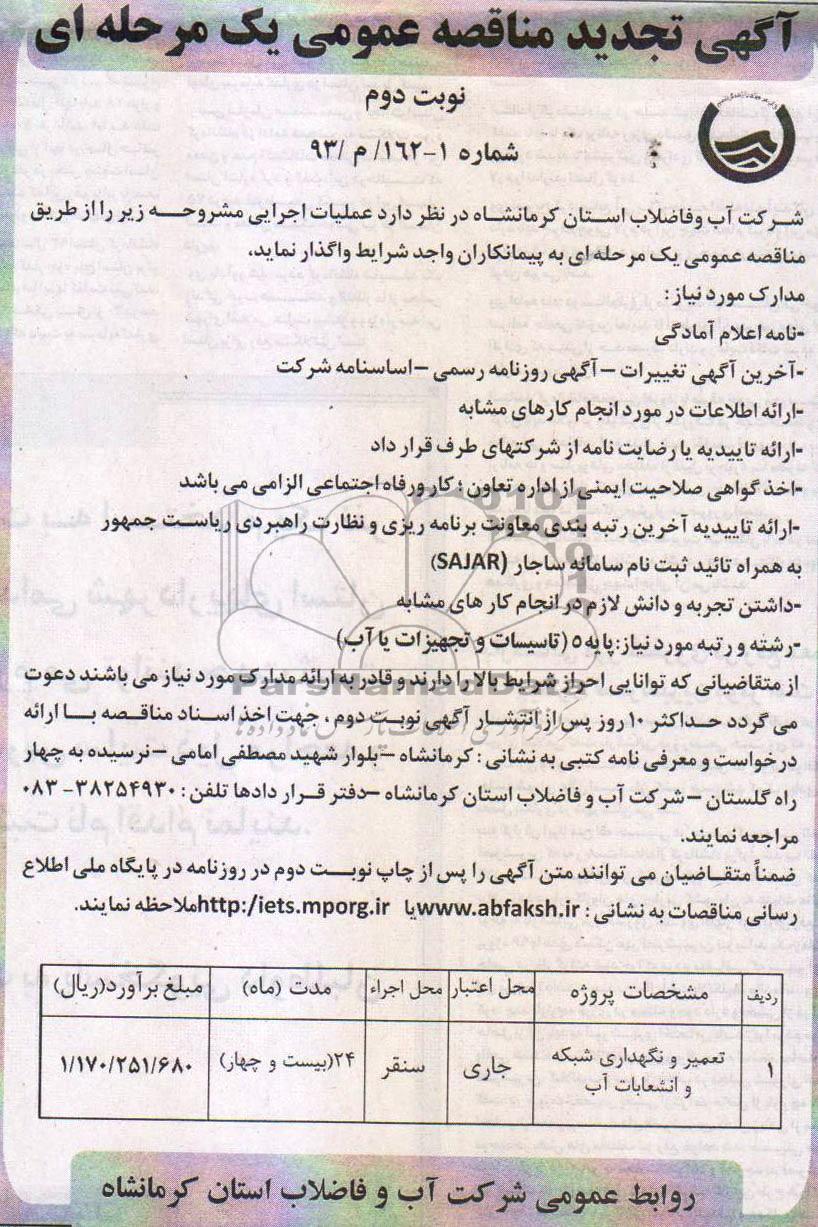 آگهی تجدید مناقصه عمومی یک مرحله ای
نوبت دوم
شماره ۱-۱۶۲/ م /۹۳
شرکت آب وفاضلاب استان کرمانشاه در نظر دارد عملیات اجرایی مشروحه زیر را از طریق
مناقصه عمومی یک مرحله ای به پیمانکاران واجد شرایط واگذار نماید،
مدارک مورد نیاز :
-نامه اعلام آمادگی
-آخرین آگهی تغییرات –آگهی روزنامه رسمی –اساسنامه شرکت
-ارائه اطلاعات در مورد انجام کارهای مشابه
-ارائه تاییدیه یا رضایت نامه از شرکتهای طرف قرار داد
-اخذ گواهی صلاحیت ایمنی از اداره تعاون ؛ کار ورفاه اجتماعی الزامی می باشد
-ارائه تاییدیه آخرین رتبه بندی معاونت برنامه ریزی و نظارت راهبردی ریاست جمهور
به همراه تائید ثبت نام سامانه ساجار (SAJAR)
-داشتن تجربه و دانش لازم در انجام کار های مشابه
-رشته و رتبه مورد نیاز: پایه ۵ (تاسیسات و تجهیزات یا آب)
از متقاضیانی که توانایی احراز شرایط بالا را دارند و قادر به ارائه مدارک مورد نیاز می باشند دعوت
می گردد حداکثر ۱۰ روز پس از انتشار آگهی نوبت دوم ، جهت اخذ اسناد مناقصه با ارائه
درخواست و معرفی نامه کتبی به نشانی : کرمانشاه –بلوار شهید مصطفی امامی –نرسیده به چهار
راه گلستان –شرکت آب و فاضلاب استان کرمانشاه –دفتر قرار دادها تلفن : ۳۸۲۵۴۹۳۰- ۰۸۳
مراجعه نمایند.
ضمناً متقاضیان می توانند متن آگهی را پس از چاپ نوبت دوم در روزنامه در پایگاه ملی اطلاع
رسانی مناقصات به نشانی : www.abfaksh.ir یا http:/iets.mporg.ir ملاحظه نمایند.
ردیف مشخصات پروژه محل اعتبار محل اجراء مدت (ماه) مبلغ برآورد(ریال)
۱ تعمیر و نگهداری شبکه و انشعابات آب جاری سنقر ۲۴(بیست و چهار) ۱/۱۷۰/۲۵۱/۶۸۰
روابط عمومی شرکت آب و فاضلاب استان کرمانشاه
ParsNamadData